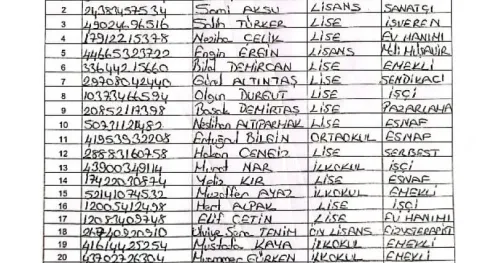 2 Sami AKSU LİSANS SANATÇI
3 49024696516 Salih TÜRKER LİSE İŞVEREN
4 17912215378 Nesibe ÇELİK LİSE EV HANIMI
5 44665323722 Engin ERGİN LİSANS
6 33644215660 Bilal DEMİRCAN LİSE EMEKLİ
7 29708042440 ALTINTAŞ LİSE SENDİKACI
8 Olgun DURGUT LİSE İŞÇİ
9 20852117398 Başak DEMİRTAŞ LİSE PAZARLAMA
10 Neslihan ALTIPARMAK LİSE ESNAF
11 41953932208 Ertuğrul BİLGİN ORTAOKUL ESNAF
12 28883160758 Hakan CENGİZ LİSE SERBEST
13 43900349114 Murat NAR İLKOKUL İŞÇİ
14 KIR LİSE ESNAF
15 52141074532 Muzaffer AYAZ İLKOKUL EMEKLİ
16 12005412498 ALPAK LİSE İŞÇİ
17 12083409748 Elif ÇETİN LİSE EV HANIMI
18 ÖN LİSANS FİZYOTERAPİST
19 41614425254 Mustafa KAYA İLKOKUL EMEKLİ
20 43702726304 Muammer GÜRKEN İLKOKUL EMEKLİ